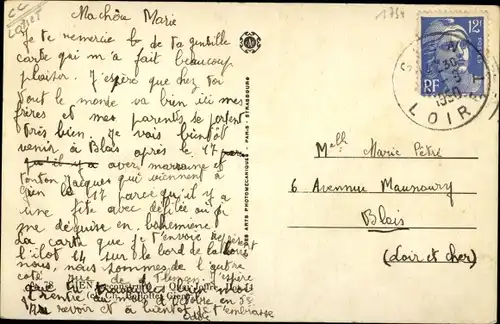 Ma chère Marie
Je te remercie b de ta gentille
carte qui m'a fait beaucoup
plaisir. J'espère que chez toi
tout le monde va bien ici mes
frères et mes parents se portent
très bien. Je vais bientôt
venir à Blois après le 17 par
qu'il y a avec marraine et
tonton Jacques qui viennent à
Gien le 17 parce qu'il y a
une fête avec défilée où je
me déguise en bohémienne
La carte que je t'envoie représente
l'ilot 14 sur le bord de la Loire
nous, nous sommes de l'autre
côté
rentre au mois d'octobre en
revoir et à bientôt je t'embrasse
Odile
DES ARTS PHOTOMÉCANIQUES PARIS - STRASBOURG
1754
12F
RF
1950
LOIRET
Melle Marie Pétré
6 Avennue Maunoury
Blois
(Loir et cher)